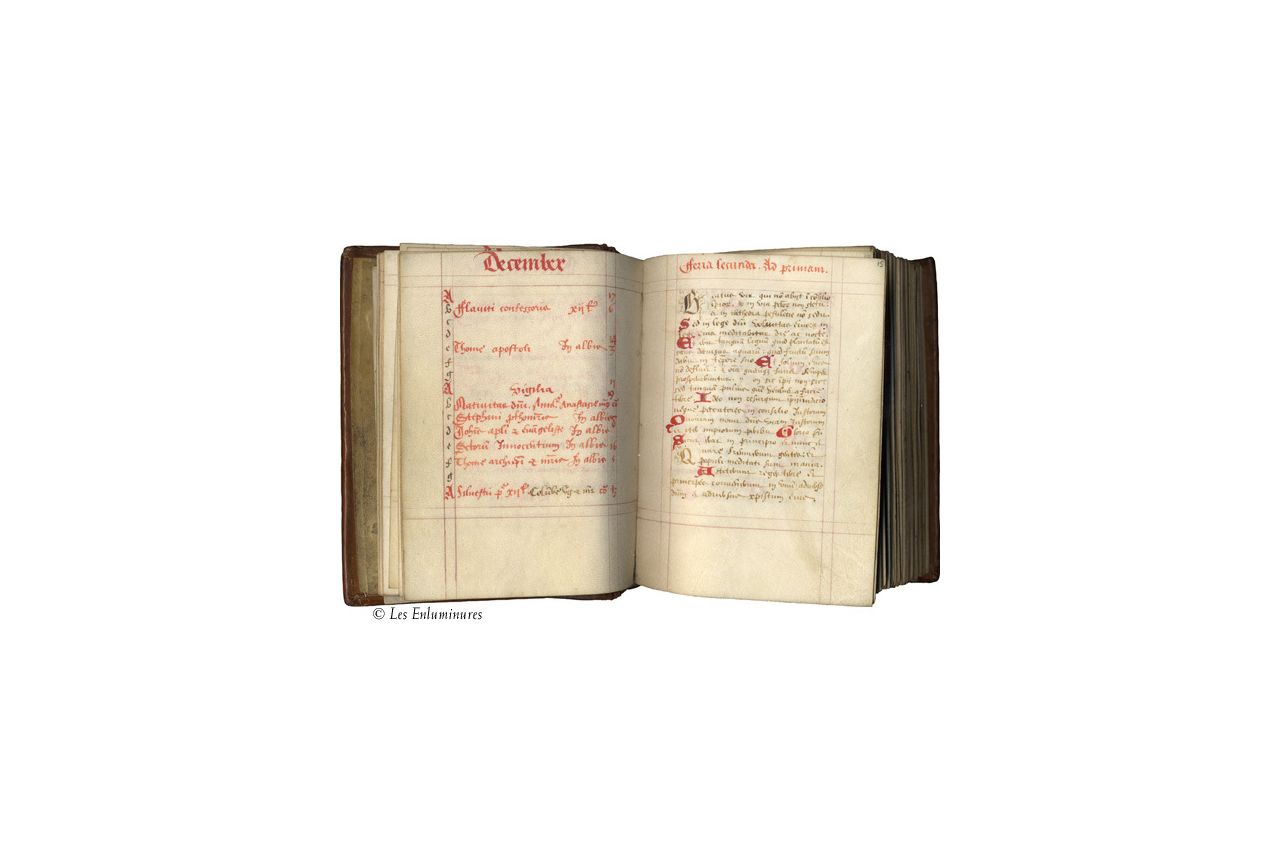 December
A
b Flaviti confessoris xij lc
c
d
e Thome apostoli In albis
f
g
A vigilia
b Nativitas dni
c Stephani In albis
d Johis apli & euangeliste In albis
e Sctorum Innocentium In albis
f Thome archiepi & mris In albis
g
A Silvestri pp xij lc Columbe vg & mr
fferia secunda. Ad primam. 15
Beatus vir qui no abijt i cosilio
impior & in via pctor non stetit
& in cathedra pestiletie no sedit
Sed in lege dni voluntas eius & in
lege eius meditabitur die ac nocte
Et erit tanquam lignum quod plantatum est
decursus aquarum quod fructum suum
dabit in tempore suo Et folium eius
no defluet & oia quecumque faciet semper
prosperabuntur. Non sic impii non sic
sed tanquam pulvis quem
Ideo non resurgunt impii in iudicio
neque peccatores in consilio Iustorum
Quoniam novit dns viam Iustorum
& iter impiorum peribit Gloria pri
Sicut erat in principio & nunc &
Quare fremuerunt gentes &
populi meditati sunt inania.
Astiterunt reges terre &
principes convenerunt in unum adversus
dnm & adversus xpistum eius
© Les Enluminures